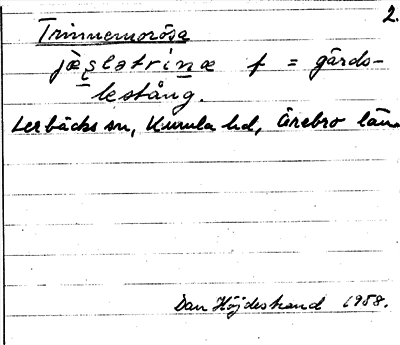 2.
Trinnemorösa
jæslatrinæ f = gärds-
lestång.
Lerbäcks sn, Kumla hd, Örebro län.
Dan Höjdestrand 1988.